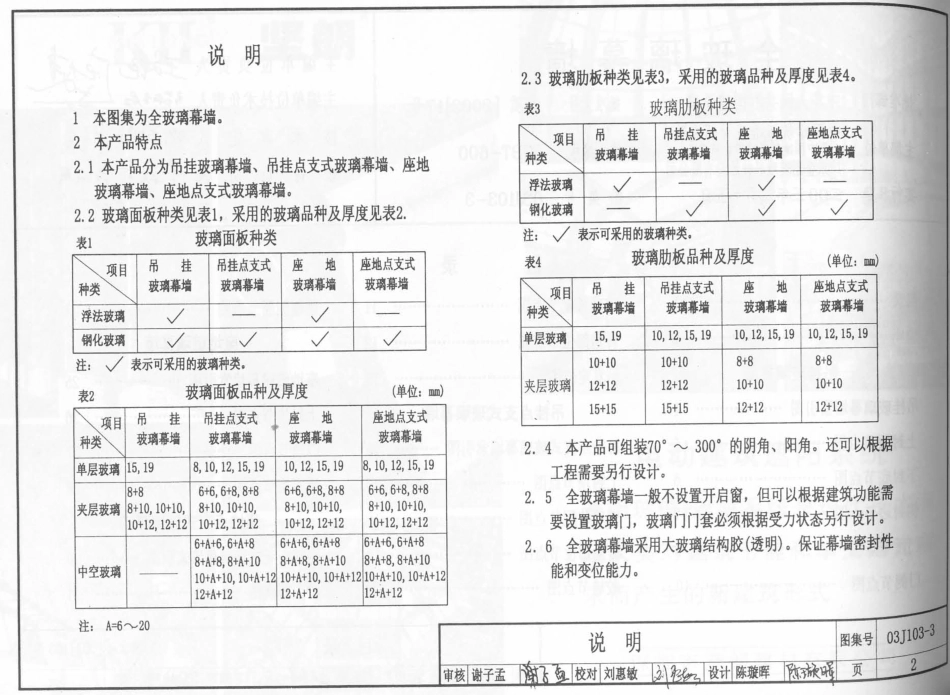 说 明
1 本图集为全玻璃幕墙。
2 本产品特点
2.1 本产品分为吊挂玻璃幕墙、吊挂点支式玻璃幕墙、座地
玻璃幕墙、座地点支式玻璃幕墙。
2.2 玻璃面板种类见表1，采用的玻璃品种及厚度见表2.
表1 玻璃面板种类
项目 吊 挂 吊挂点支式 座 地 座地点支式
种类 玻璃幕墙 玻璃幕墙 玻璃幕墙 玻璃幕墙
浮法玻璃 ✓ — ✓ —
钢化玻璃 ✓ ✓ ✓ ✓
注: ✓ 表示可采用的玻璃种类。
表2 玻璃面板品种及厚度 (单位: mm)
项目 吊 挂 吊挂点支式 座 地 座地点支式
种类 玻璃幕墙 玻璃幕墙 玻璃幕墙 玻璃幕墙
单层玻璃 15, 19 8, 10, 12, 15, 19 10, 12, 15, 19 8, 10, 12, 15, 19
8+8 6+6, 6+8, 8+8 6+6, 6+8, 8+8 6+6, 6+8, 8+8
夹层玻璃 8+10, 10+10, 8+10, 10+10, 8+10, 10+10, 8+10, 10+10,
10+12, 12+12 10+12, 12+12 10+12, 12+12 10+12, 12+12
6+A+6, 6+A+8 6+A+6, 6+A+8 6+A+6, 6+A+8
8+A+8, 8+A+10 8+A+8, 8+A+10 8+A+8, 8+A+10
中空玻璃 — 10+A+10, 10+A+12 10+A+10, 10+A+12 10+A+10, 10+A+12
12+A+12 12+A+12 12+A+12
注: A=6～20
2.3 玻璃肋板种类见表3，采用的玻璃品种及厚度见表4。
表3 玻璃肋板种类
项目 吊 挂 吊挂点支式 座 地 座地点支式
种类 玻璃幕墙 玻璃幕墙 玻璃幕墙 玻璃幕墙
浮法玻璃 ✓ — ✓ —
钢化玻璃 — ✓ ✓ ✓
注: ✓ 表示可采用的玻璃种类。
表4 玻璃肋板品种及厚度 (单位: mm)
项目 吊 挂 吊挂点支式 座 地 座地点支式
种类 玻璃幕墙 玻璃幕墙 玻璃幕墙 玻璃幕墙
单层玻璃 15, 19 10, 12, 15, 19 10, 12, 15, 19 10, 12, 15, 19
10+10 10+10 8+8 8+8
夹层玻璃 12+12 12+12 10+10 10+10
15+15 15+15 12+12 12+12
2. 4 本产品可组装70° ～ 300° 的阴角、阳角。还可以根据
工程需要另行设计。
2. 5 全玻璃幕墙一般不设置开启窗，但可以根据建筑功能需
要设置玻璃门，玻璃门门套必须根据受力状态另行设计。
2. 6 全玻璃幕墙采用大玻璃结构胶(透明)。保证幕墙密封性
能和变位能力。
说 明 图集号 03J103-3
审核 谢子孟 校对 刘惠敏 设计 陈璇晖 页 2